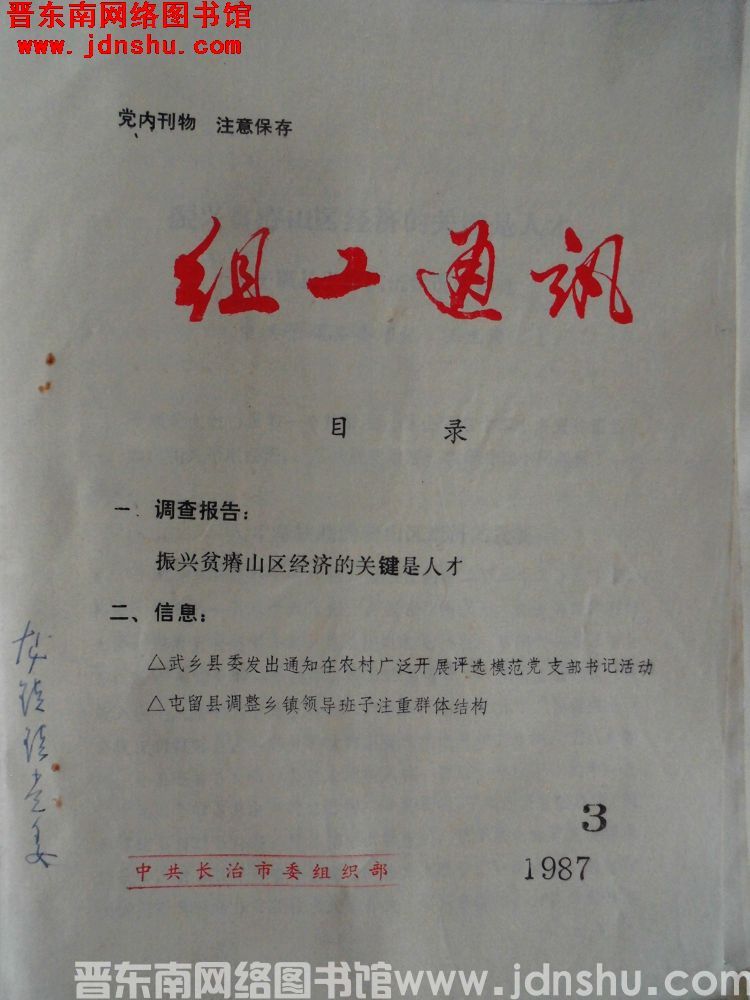 晋东南网络图书馆
www.jdnshu.com
党内刊物 注意保存
组工通讯
目 录
一、调查报告：
振兴贫瘠山区经济的关键是人才
二、信息：
△武乡县委发出通知在农村广泛开展评选模范党支部书记活动
△屯留县调整乡镇领导班子注重群体结构
3
1987
中共长治市委组织部
镇党委
晋东南网络图书馆www.jdnshu.com